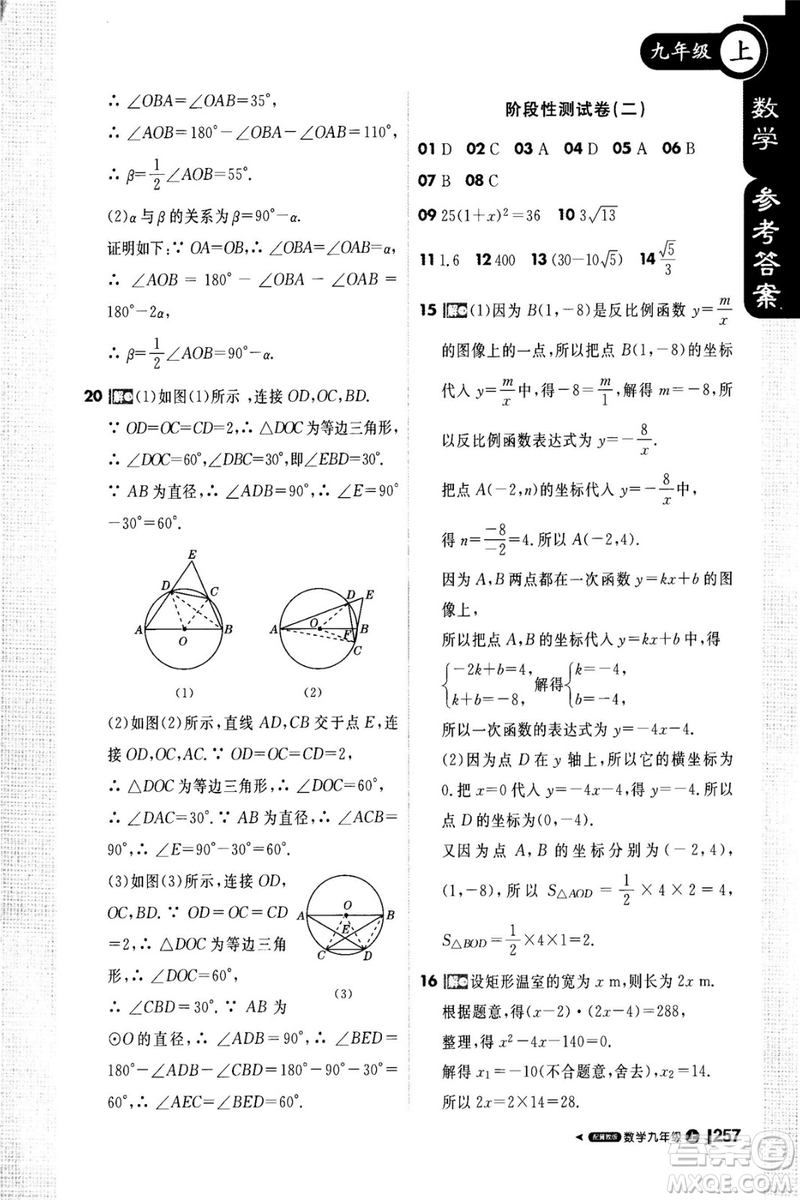 九年级 上
数学 参考答案
∴ ∠OBA=∠OAB=35°,
∴ ∠AOB=180°-∠OBA-∠OAB=110°,
∴ β=1/2∠AOB=55°.
(2)α与β的关系为β=90°-α.
证明如下:∵ OA=OB,∴ ∠OBA=∠OAB=α,
∴ ∠AOB = 180° - ∠OBA - ∠OAB =
180°-2α,
∴ β=1/2∠AOB=90°-α.
20 解 (1)如图(1)所示,连接OD,OC,BD.
∵ OD=OC=CD=2,∴ △DOC为等边三角形,
∴ ∠DOC=60°,∠DBC=30°,即∠EBD=30°.
∵ AB为直径,∴ ∠ADB=90°,∴ ∠E=90°
-30°=60°.
E
D C
A O B
(1)
D E
A O B
F
C
(2)
(2)如图(2)所示,直线AD,CB交于点E,连
接OD,OC,AC.∵ OD=OC=CD=2,
∴ △DOC为等边三角形,∴ ∠DOC=60°,
∴ ∠DAC=30°.∵ AB为直径,∴ ∠ACB=
90°,∴ ∠E=90°-30°=60°.
(3)如图(3)所示,连接OD,
OC,BD.∵ OD=OC=CD
=2,∴ △DOC为等边三角
形,∴ ∠DOC=60°,
∴ ∠CBD=30°.∵ AB为
⊙O的直径,∴ ∠ADB=90°,∴ ∠BED=
180°-∠ADB-∠CBD=180°-90°-30°=
60°,∴ ∠AEC=∠BED=60°.
O
A E B
C D
(3)
阶段性测试卷(二)
01 D 02 C 03 A 04 D 05 A 06 B
07 B 08 C
09 25(1+x)²=36 10 3√13
11 1.6 12 400 13 (30-10√5) 14 √5/3
15 解 (1)因为B(1,-8)是反比例函数y=m/x
的图像上的一点,所以把点B(1,-8)的坐标
代入y=m/x,得-8=m/1,解得m=-8,所
以反比例函数表达式为y=-8/x.
把点A(-2,n)的坐标代入y=-8/x中,
得n=-8/-2=4.所以A(-2,4).
因为A,B两点都在一次函数y=kx+b的图
像上,
所以把点A,B的坐标代入y=kx+b中,得
{-2k+b=4, k+b=-8, 解得{k=-4, b=-4.
所以一次函数的表达式为y=-4x-4.
(2)因为点D在y轴上,所以它的横坐标为
0.把x=0代入y=-4x-4,得y=-4.所
以点D的坐标为(0,-4).
又因为点A,B的坐标分别为(-2,4),
(1,-8),所以S△AOD=1/2×4×2=4,
S△BOD=1/2×4×1=2.
16 解 设矩形温室的宽为x m,则长为2x m.
根据题意,得(x-2)·(2x-4)=288,
整理,得x²-4x-140=0.
解得x₁=-10(不合题意,舍去),x₂=14.
所以2x=2×14=28.
配冀教版 数学九年级 上 257
答案圈
MXQE.COM